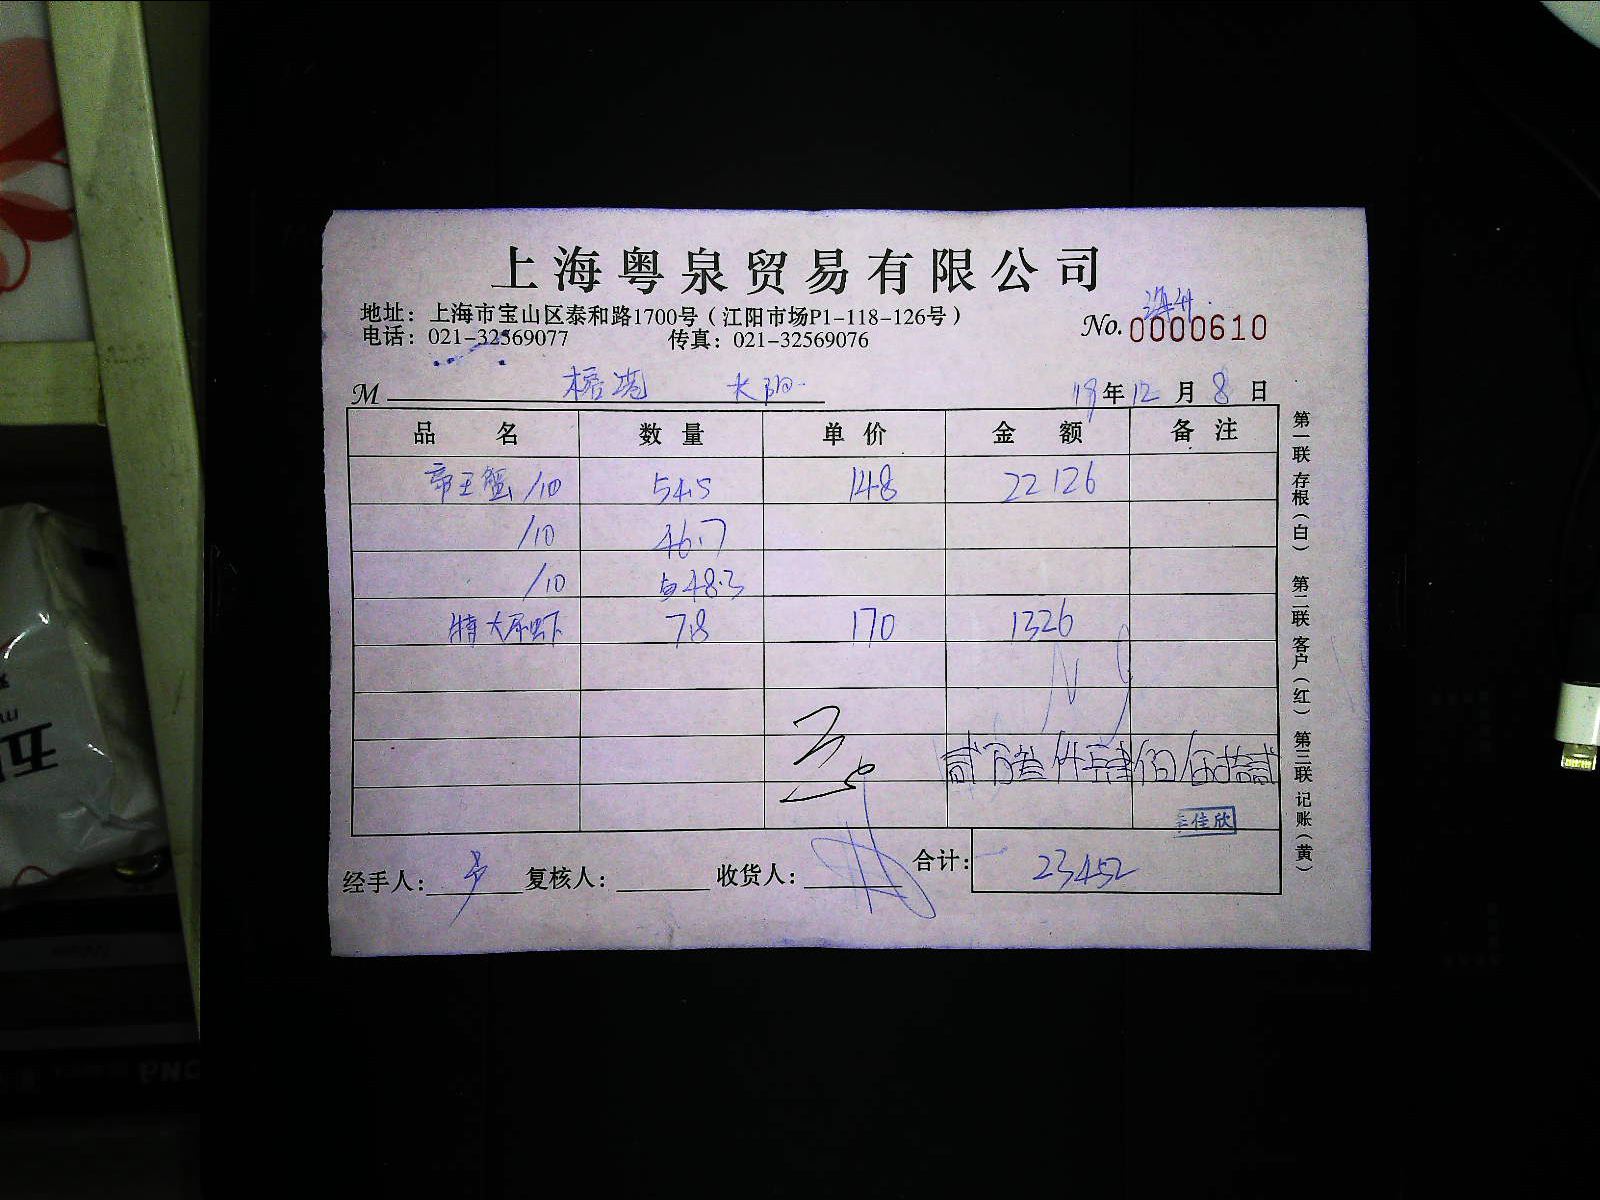 上海粤泉贸易有限公司
地址：上海市宝山区泰和路1700号（江阳市场P1-118-126号）
电话：021-32569077 传真：021-32569076
No. 0000610
M 大阳
19年12月8日
品名 数量 单价 金额 备注
帝王蟹/10 54.5 148 22126
/10 46.7
/10 48.3
特大 78 170 1326
贰万叁仟肆佰伍拾贰
佳欣
经手人： 复核人： 收货人： 合计： 23452
第一联 存根（白） 第二联 客户（红） 第三联 记账（黄）
五